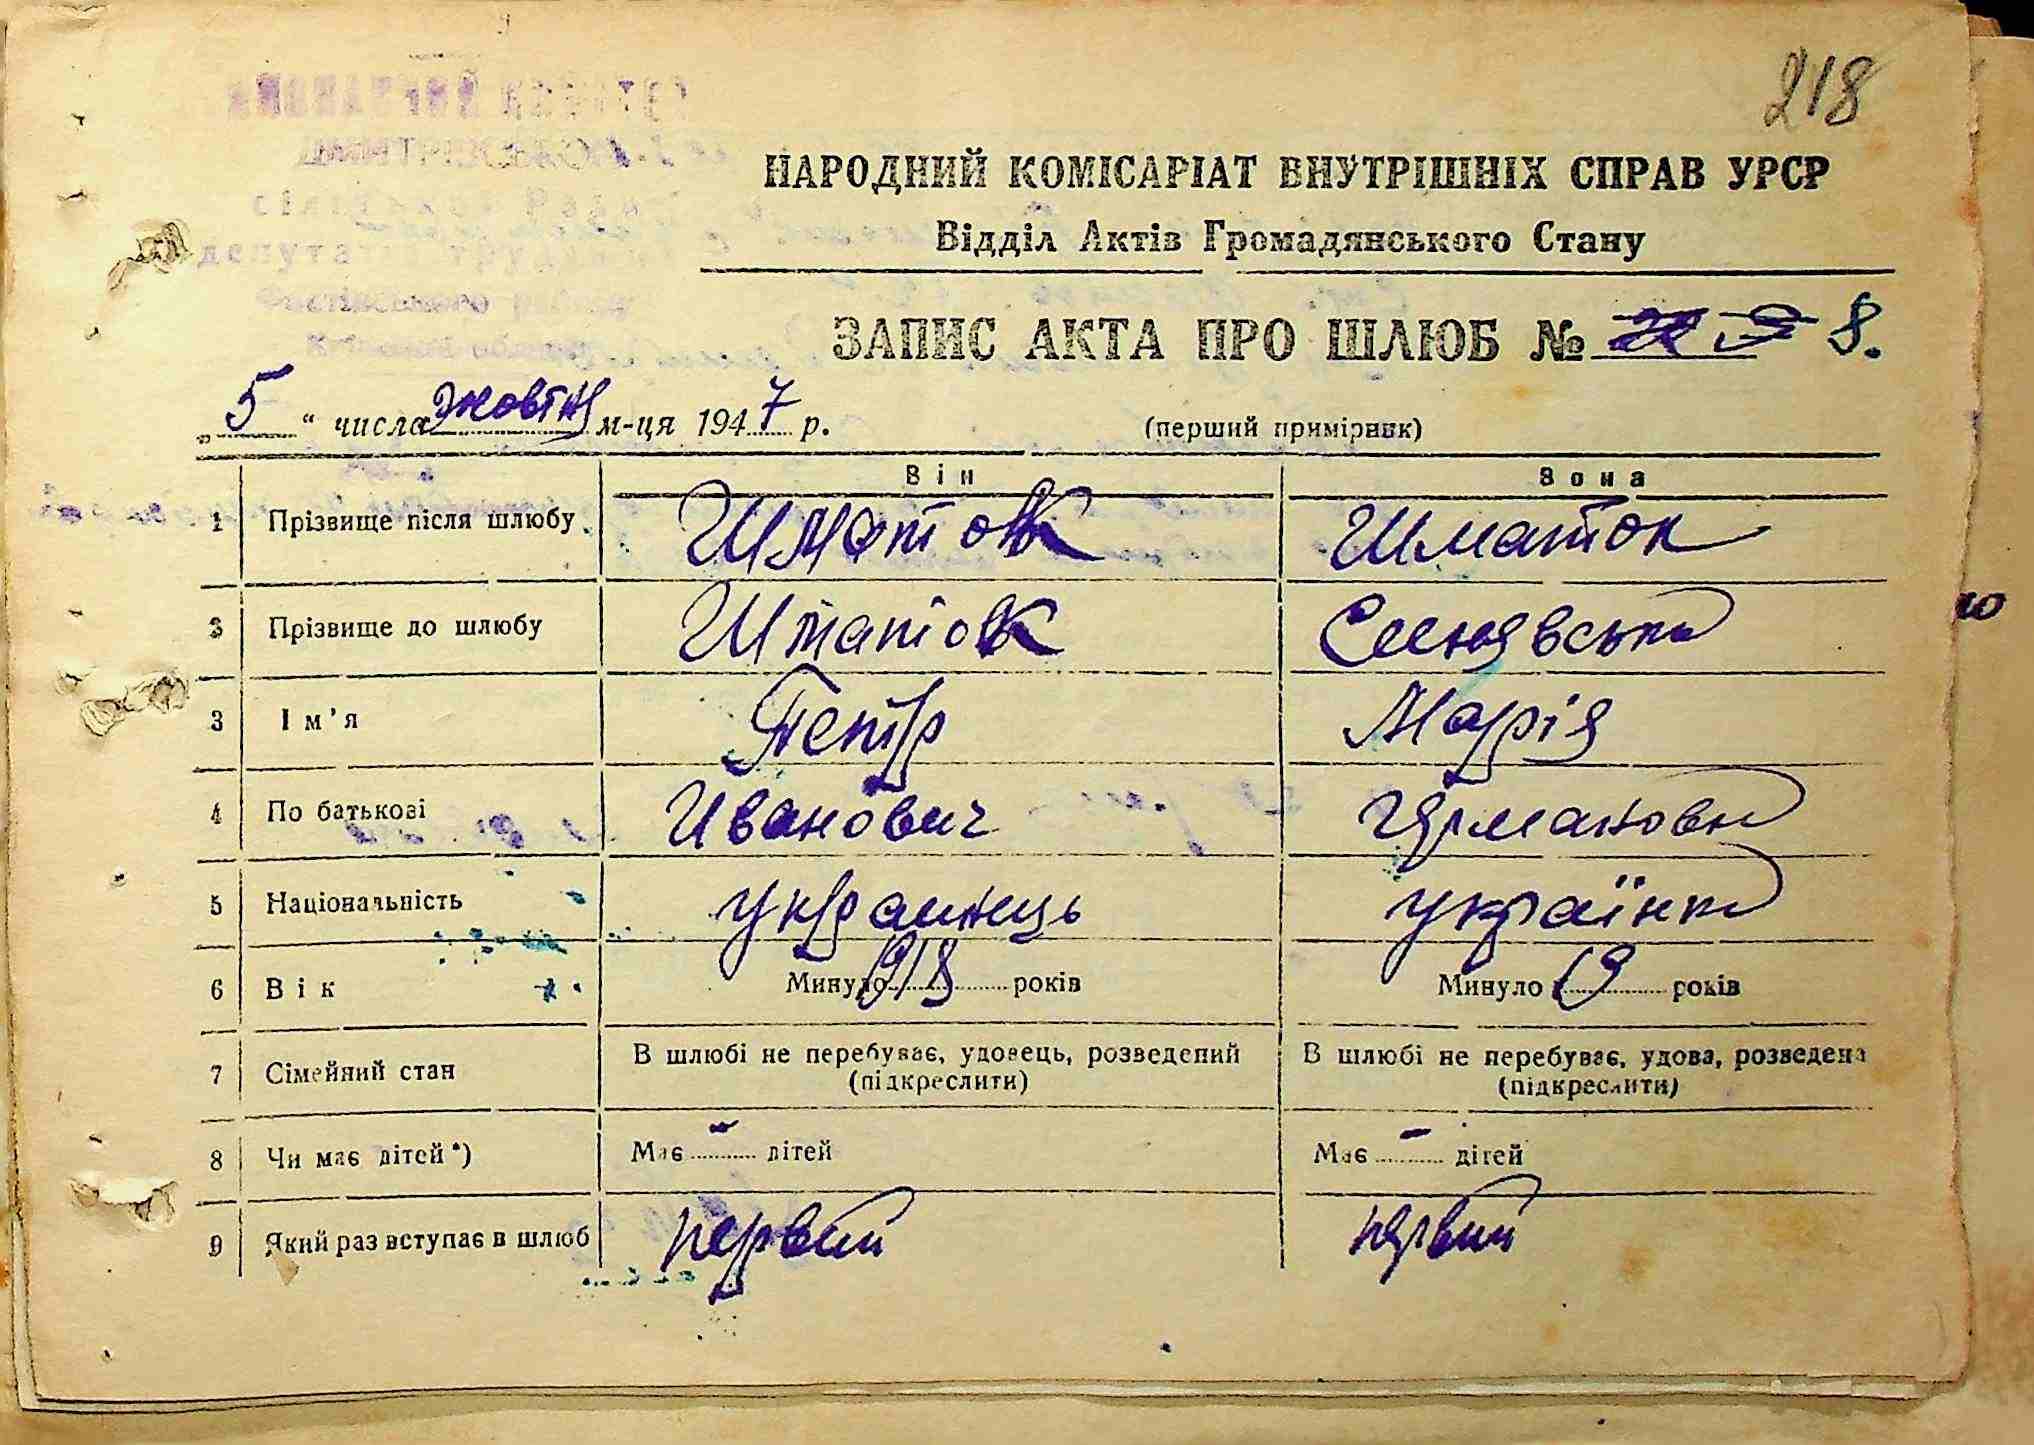 218
НАРОДНИЙ КОМІСАРІАТ ВНУТРІШНІХ СПРАВ УРСР
Відділ Актів Громадянського Стану
ЗАПИС АКТА ПРО ШЛЮБ № 8.
„5“ числа жовтня м-ця 1947 р. (перший примірник)
Він Вона
1 Прізвище після шлюбу Шматок Шматок
2 Прізвище до шлюбу Шматок Синявська
3 Ім'я Петр Марія
4 По батькові Иванович
5 Національність украинець українка
6 Вік Минуло років Минуло 19 років
7 Сімейний стан В шлюбі не перебуває, удовець, розведений (підкреслити) В шлюбі не перебуває, удова, розведена (підкреслити)
8 Чи має дітей*) Має - дітей Має - дітей
9 Який раз вступає в шлюб первий первий